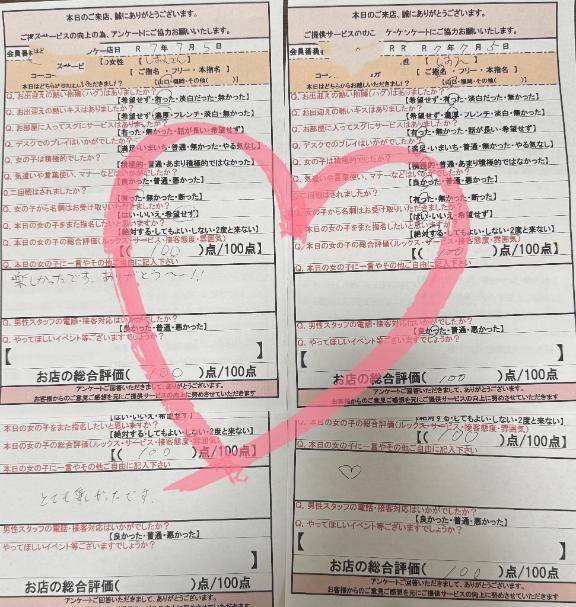 本日のご来店、誠にありがとうございます。
サービスの向上の為、アンケートにご協力お願いいたします。
店日 R 7年 7月 5日
ご指名・フリー・本指名
Q. お出迎えの熱い抱擁(ハグ)はありましたか?
【希望せず・有った・淡白だった・無かった】
Q. お出迎えの熱いキスはありましたか?
【希望せず・濃厚・フレンチ・淡泊・無かった】
Q. お部屋に入ってスグにサービスはありましたか?
【有った・無かった・話が長い・希望せず】
Q. デスクでのプレイはいかがでしたか?
【満足・いまいち・普通・無かった・やる気なし】
Q. 女の子は積極的でしたか?
【積極的・普通・あまり積極的ではなかった】
Q. 気遣いや言葉使い、マナーなどはいかがでしたか?
【良かった・普通・悪かった】
Q. 二回戦はされましたか?
【有った・無かった・断った】
Q. 女の子から名刺はお受け取りいただきましたか?
【はい・いいえ・希望せず】
Q. 本日の女の子をまた指名したいと思いますか?
【絶対する・してもよい・しない・2度と来ない】
Q. 本日の女の子の総合評価(ルックス・サービス・接客態度・雰囲気)
【( 100 )点/100点】
Q. 本日の女の子に一言やその他ご自由に記入下さい
楽しかったです。ありがとう〜!!
Q. 男性スタッフの電話・接客対応はいかがでしたか?
【良かった・普通・悪かった】
Q. やってほしいイベント等ございますでしょうか?
【 】
お店の総合評価( 100 )点/100点
アンケートご回答いただきまして、ありがとうございます。
お客様からのご意見ご感想を元にご提供サービスの向上に努めさせていただきます
本日のご来店、誠にありがとうございます。
アンケートにご協力お願いいたします。
R 7年 7月 5日
ご指名・フリー・本指名
Q. お出迎えの熱い抱擁(ハグ)はありましたか?
【希望せず・有った・淡白だった・無かった】
Q. お出迎えの熱いキスはありましたか?
【希望せず・濃厚・フレンチ・淡泊・無かった】
Q. お部屋に入ってスグにサービスはありましたか?
【有った・無かった・話が長い・希望せず】
Q. デスクでのプレイはいかがでしたか?
【満足・いまいち・普通・無かった・やる気なし】
Q. 女の子は積極的でしたか?
【積極的・普通・あまり積極的ではなかった】
Q. 気遣いや言葉使い、マナーなどはいかがでしたか?
【良かった・普通・悪かった】
Q. 二回戦はされましたか?
【有った・無かった・断った】
Q. 女の子から名刺はお受け取りいただきましたか?
【はい・いいえ・希望せず】
Q. 本日の女の子をまた指名したいと思いますか?
【絶対する・してもよい・しない・2度と来ない】
Q. 本日の女の子の総合評価(ルックス・サービス・接客態度・雰囲気)
【( 100 )点/100点】
Q. 本日の女の子に一言やその他ご自由に記入下さい
Q. 男性スタッフの電話・接客対応はいかがでしたか?
【良かった・普通・悪かった】
Q. やってほしいイベント等ございますでしょうか?
【 】
お店の総合評価( 100 )点/100点
アンケートご回答いただきまして、ありがとうございます。
お客様からのご意見ご感想を元にご提供サービスの向上に努めさせていただきます
【はい・いいえ・希望せず】
本日の女の子をまた指名したいと思いますか?
【絶対する・してもよい・しない・2度と来ない】
本日の女の子の総合評価(ルックス・サービス・接客態度・雰囲気)
【( 100 )点/100点】
本日の女の子に一言やその他ご自由に記入下さい
とても楽しかったです。
男性スタッフの電話・接客対応はいかがでしたか?
【良かった・普通・悪かった】
やってほしいイベント等ございますでしょうか?
】
お店の総合評価( )点/100点
アンケートご回答いただきまして、ありがとうございます。
お客様からのご意見ご感想を元にご提供サービスの向上に努めさせていただきます
【絶対する・してもよい・しない・2度と来ない】
Q. 本日の女の子の総合評価(ルックス・サービス・接客態度・雰囲気)
【( 100 )点/100点】
Q. 本日の女の子に一言やその他ご自由に記入下さい
Q. 男性スタッフの電話・接客対応はいかがでしたか?
【良かった・普通・悪かった】
Q. やってほしいイベント等ございますでしょうか?
【 】
お店の総合評価( 100 )点/100点
アンケートご回答いただきまして、ありがとうございます。
お客様からのご意見ご感想を元にご提供サービスの向上に努めさせていただきます